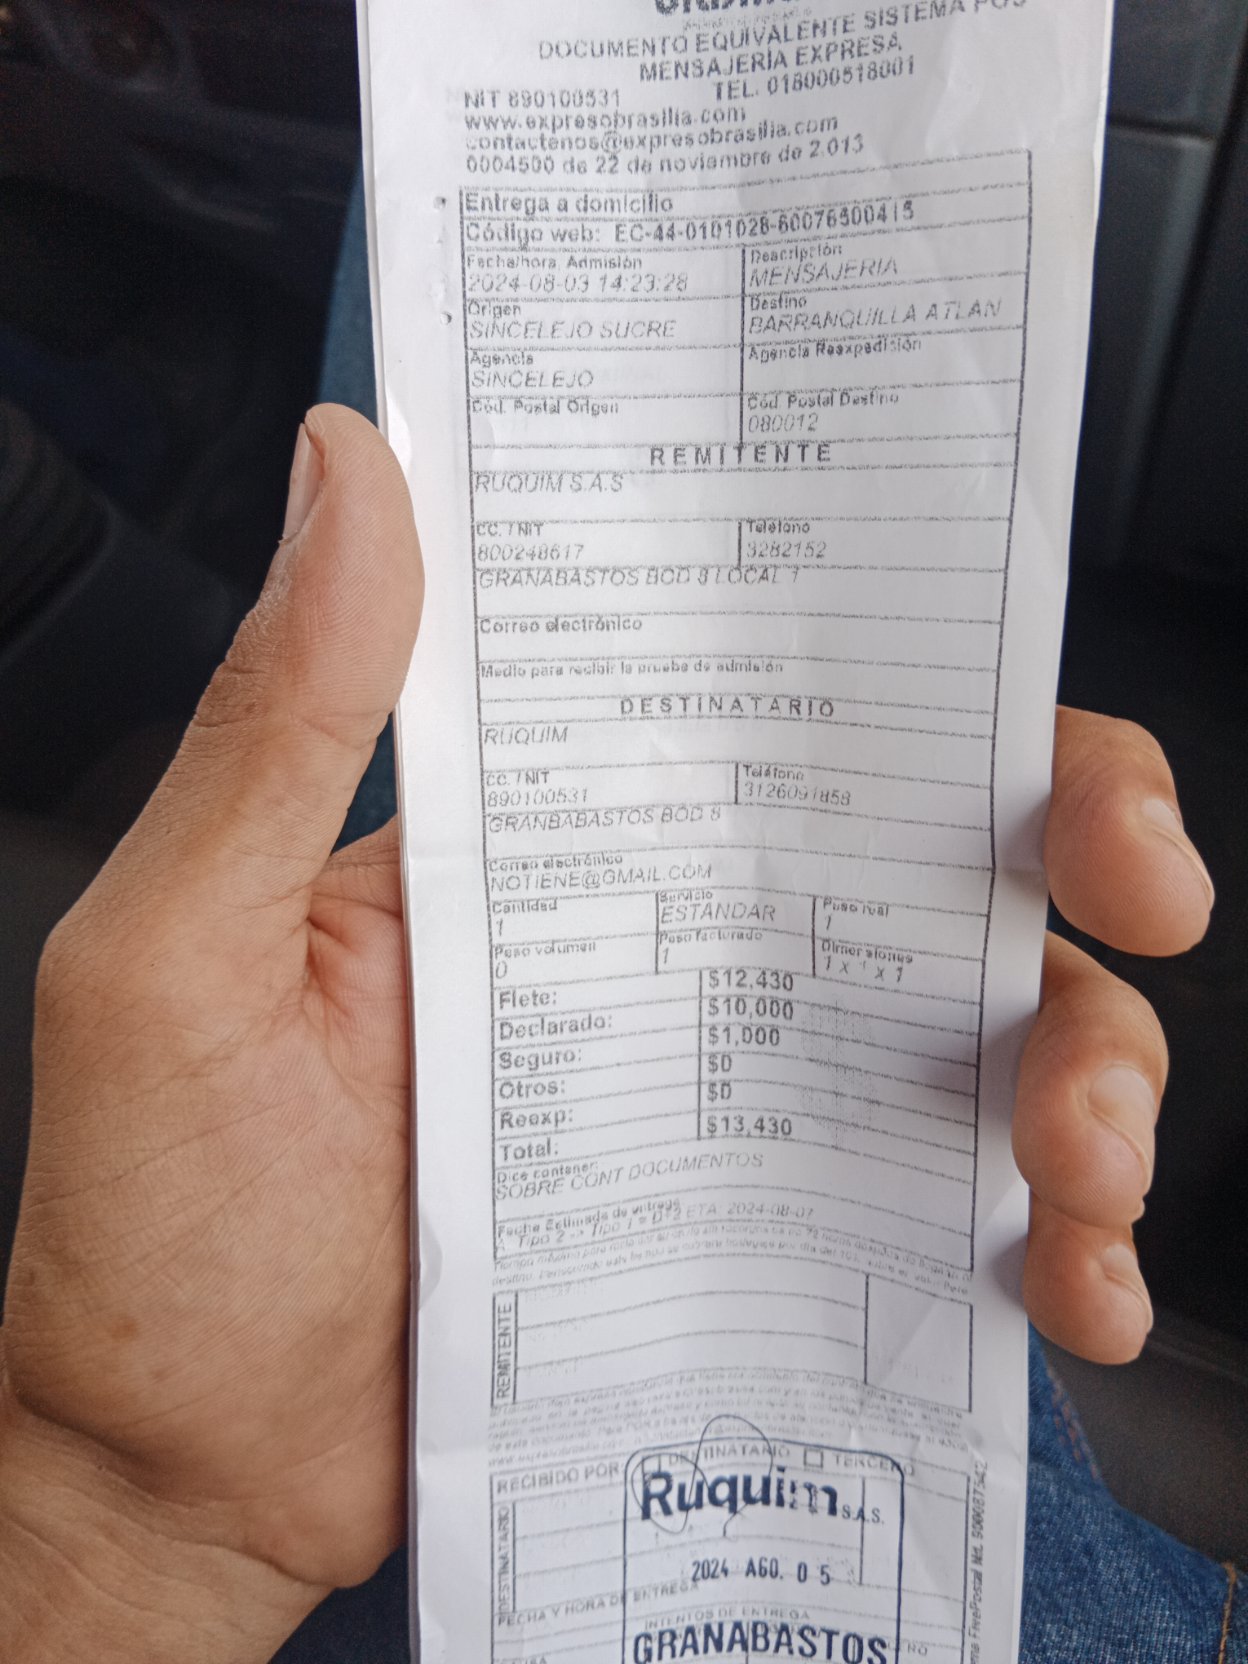 DOCUMENTO EQUIVALENTE SISTEMA POS
MENSAJERIA EXPRESA
NIT 890100531 TEL. 018000518001
www.expresobrasilia.com
contactenos@expresobrasilia.com
0004500 de 22 de noviembre de 2.013
Entrega a domicilio
Código web: EC-44-0101028-60076500415
Fecha/hora. Admisión Descripción
2024-08-03 14:23:28 MENSAJERIA
Origen Destino
SINCELEJO SUCRE BARRANQUILLA ATLAN
Agencia Agencia Reexpedición
SINCELEJO
Cód. Postal Origen Cód. Postal Destino
080012
REMITENTE
RUQUIM S.A.S
CC. / NIT Teléfono
800248617 3282152
GRANABASTOS BOD 8 LOCAL 1
Correo electrónico
Medio para recibir la prueba de admisión
DESTINATARIO
RUQUIM
CC. / NIT Teléfono
890100531 3126091858
GRANBABASTOS BOD 8
Correo electrónico
NOTIENE@GMAIL.COM
Cantidad Servicio Peso real
1 ESTANDAR 1
Peso volumen Peso facturado Dimensiones
0 1 1 x 1 x 1
Flete: $12,430
Declarado: $10,000
Seguro: $1,000
Otros: $0
Reexp: $0
Total: $13,430
Dice contener:
SOBRE CONT DOCUMENTOS
Fecha Estimada de entrega
Tipo 2 -> Tipo 1 = D+2 ETA: 2024-08-07
REMITENTE
RECIBIDO POR DESTINATARIO TERCERO
Ruquim S.A.S.
DESTINATARIO
2024 AGO. 05
FECHA Y HORA DE ENTREGA
INTENTOS DE ENTREGA
GRANABASTOS